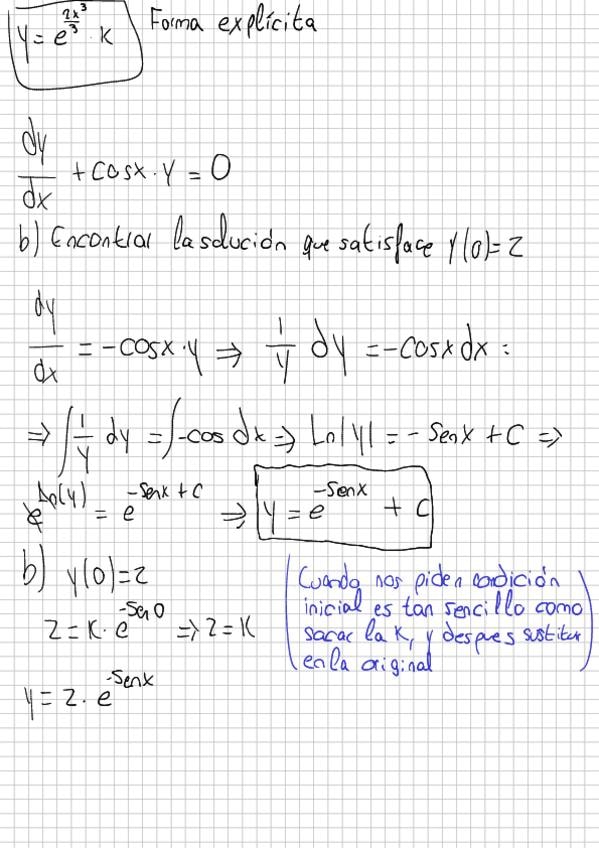 y = e^(2x³/3) · K Forma explícita
dy/dx + cosx · y = 0
b) Encontrar la solución que satisface y(0)=2
dy/dx = -cosx · y ⇒ 1/y dy = -cosx dx =
⇒ ∫ 1/y dy = ∫ -cos dx ⇒ Ln|y| = -Senx + C ⇒
e^(Ln(y)) = e^(-Senx + C) ⇒ y = e^(-Senx) + C
b) y(0)=2
2 = K · e^(-Sen0) ⇒ 2 = K
y = 2 · e^(-Senx)
(Cuando nos piden condición
inicial es tan sencillo como
sacar la K, y despues sustituir
en la original)